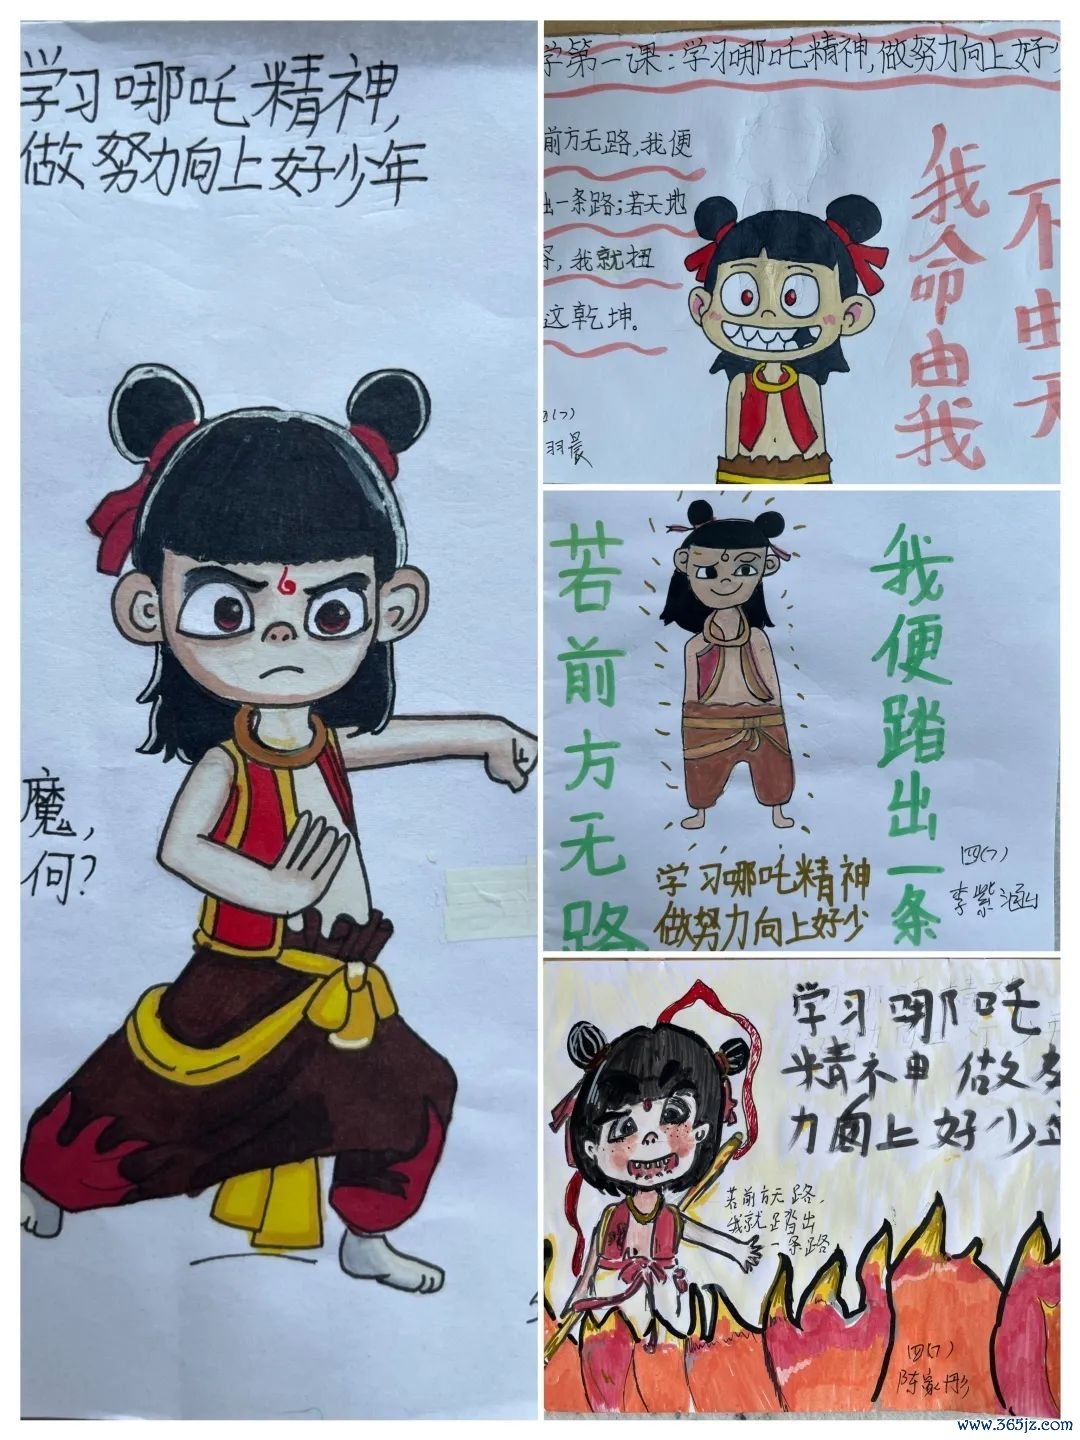 学习哪吒精神,
做努力向上好少年
魔,
何?
学第一课:学习哪吒精神,做努力向上好少
前方无路,我便
出一条路;若天地
容,我就扭
这乾坤。
四(7)
羽晨
我命由我
不由天
若前方无路
我便踏出一条
学习哪吒精神
做努力向上好少
四(7)
李紫涵
学习哪吒
精神做努
力向上好少年
若前方无路,
我就踏出
一条路
四(7)
陈家彤
www.365jz.com